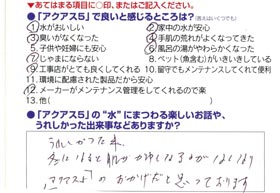 ▼あてはまる項目に○印、またはご記入ください。
●「アクアス5」で良いと感じるところは?(答えはいくつでも)
1.水がおいしい 2.家中の水が安心
3.臭いがなくなった 4.手肌の荒れがよくなってきた
5.子供や妊婦にも安心 6.風呂の湯がやわらかくなった
7.じゃまにならない 8.ペット(魚含む)がいきいきしている
9.工事店がとても良くしてくれる 10.留守でもメンテナンスしてくれて便利
11.環境に配慮された製品だから安心
12.メーカーがメンテナンス管理をしてくれるので楽
13.他(
●「アクアス5」の“水”にまつわる楽しいお話や、
うれしかった出来事などありますか?
うれしかった事。
冬になると肌が痒くなるのがなくなり
「アクアス5」のおかげだと思っております